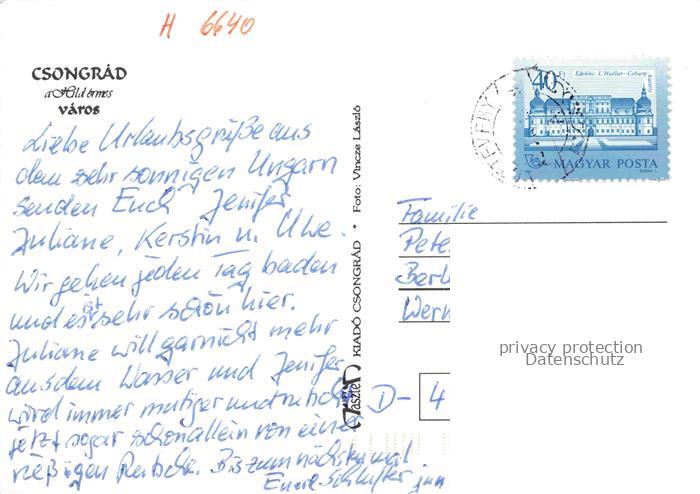 H 6640
CSONGRÁD
a Hild érmes
város
Liebe Urlaubsgrüße aus
dem sehr sonnigen Ungarn
senden Euch Jenifer
Juliane, Kerstin u. Uwe.
Wir gehen jeden Tag baden
und es ist sehr schön hier.
Juliane will garnicht mehr
aus dem Wasser und Jenifer
wird immer mutiger und rutscht
jetzt sogar schon allein von einer
rießigen Rutsche. Bis zum nächsten mal
Eure Schlufter jun
KIADÓ CSONGRÁD • Foto: Vincze László
40 Ft
Edelény. L'Huillier-Coburg-kastély
MAGYAR POSTA
Familie
Pete
Berl
Wern
D- 4
privacy protection
Datenschutz